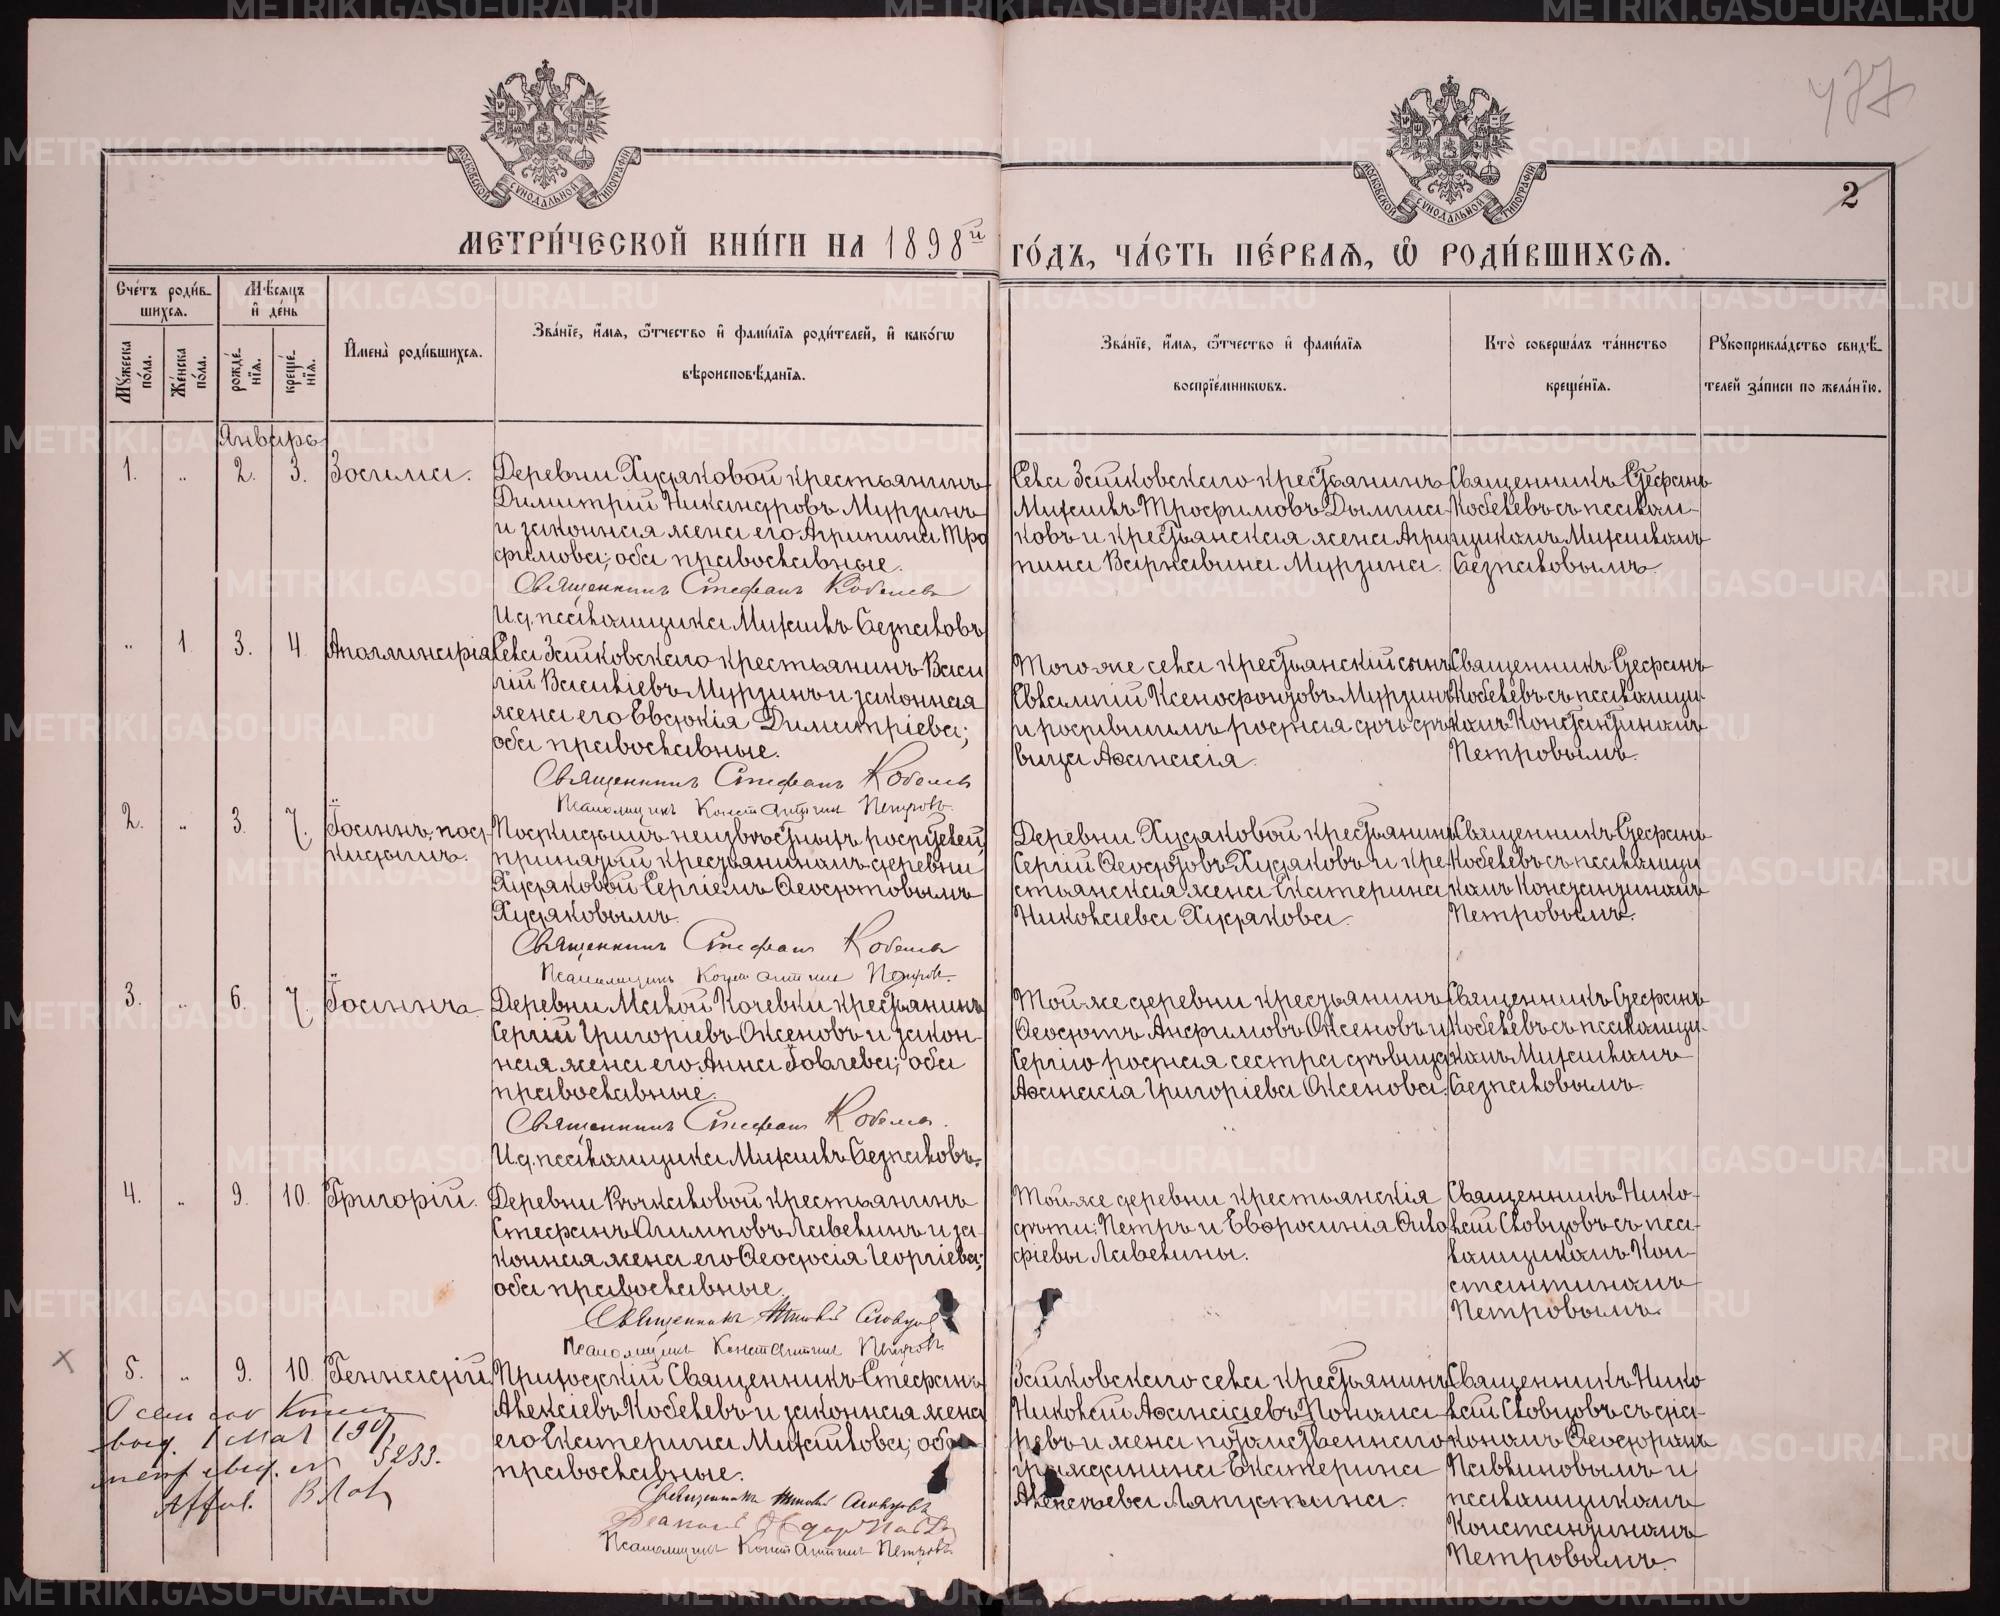 477
2
МОСКОВСКОЙ СѴНОДАЛЬНОЙ ТИПОГРАФІИ
МОСКОВСКОЙ СѴНОДАЛЬНОЙ ТИПОГРАФІИ
МЕТРИ́ЧЕСКОЙ КНИ́ГИ НА 1898й ГО́ДЪ, ЧА́СТЬ ПЕ́РВАЯ, Ѽ РОДИ́ВШИХСЯ.
Сче́тъ роди́вшихся.
Мꙋ́жеска по́ла.
Же́нска по́ла.
Мѣ́сяцъ и҆ де́нь
рожде́нїя.
креще́нїя.
И҆мена̀ роди́вшихся.
Зва́нїе, и҆́мя, ѻ҆́тчество и҆ фами́лїя роди́телей, и҆ како́гѡ
вѣроисповѣ́данїя.
Зва́нїе, и҆́мя, ѻ҆́тчество и҆ фами́лїя
воспрїе́мникѡвъ.
Кто̀ соверша́лъ та́инство
креще́нїя.
Рꙋкоприкла́дство свидѣ́телей за́писи по жела́нїю.
Январь
1. „ 2. 3. Зосима.
Деревни Худяковой крестьянинъ
Димитрій Никандровъ Мурзинъ
и законная жена его Агрипина Тро
фимова; оба православные.
Священникъ Стефанъ Кобелевъ
И.д. псаломщика Михаилъ Безпаловъ
Села Зайковскаго крестьянинъ
Михаилъ Трофимовъ
ковъ и крестьянская жена Агри
пина Варлавина Мурзина.
Священникъ Стефанъ
Кобелевъ съ псалом-
щикомъ Михаиломъ
Безпаловымъ.
„ 1 3. 4 Аполлинарія
Села Зайковскаго крестьянинъ Васи
лій Васильевъ Мурзинъ и законная
жена его Евдокія Димитріева;
оба православные.
Священникъ Стефанъ Кобелевъ
Псаломщикъ Константинъ Петровъ.
Того же села крестьянскій сынъ
Евлампій Ксенофонтовъ Мурзинъ
и родившимъ родная дочь дѣ
вица Аѳанасія.
Священникъ Стефанъ
Кобелевъ съ псаломщи-
комъ Константиномъ
Петровымъ.
2. „ 3. 7. Іоаннъ, под-
кидышъ.
Подкидышъ неизвѣстныхъ родителей,
принятый крестьяниномъ деревни
Худяковой Сергіемъ Ѳеодотовымъ
Худяковымъ.
Священникъ Стефанъ Кобелевъ
Псаломщикъ Константинъ Петровъ.
Деревни Худяковой крестьянинъ
Сергій Ѳеодотовъ Худяковъ и кре-
стьянская жена Екатерина
Николаева Худякова.
Священникъ Стефанъ
Кобелевъ съ псаломщи
комъ Константиномъ
Петровымъ.
3. „ 6. 7. Іоаннъ
Деревни Малой Кочевки крестьянинъ
Сергій Григоріевъ Аксеновъ и закон-
ная жена его Анна Іовлева; оба
православные.
Священникъ Стефанъ Кобелевъ.
И.д. псаломщика Михаилъ Безпаловъ.
Той же деревни крестьянинъ
Ѳеодотъ Анфимовъ Аксеновъ и
Сергію родная сестра дѣвица
Аѳанасія Григоріева Аксенова.
Священникъ Стефанъ
Кобелевъ съ псаломщи-
комъ Михаиломъ
Безпаловымъ.
4. „ 9. 10. Григорій.
Деревни Вочкаловой крестьянинъ
Стефанъ Олимповъ Лавелинъ и за-
конная жена его Ѳеодосія Георгіева;
оба православные.
Священникъ Николай Словцовъ
Псаломщикъ Константинъ Петровъ
Той же деревни крестьянскія
дѣти: Петръ и Евфросинія
фіевы Лавелины.
Священникъ Нико-
лай Словцовъ съ пса-
ломщикомъ Кон-
стантиномъ
Петровымъ.
5. „ 9. 10 Геннадій
Приходскій Священникъ Стефанъ
Алексіевъ Кобелевъ и законная жена
его Екатерина Михайлова; оба
православные.
Священникъ Николай Словцовъ
Псаломщикъ Константинъ Петровъ
Зайковскаго села крестьянинъ
Николай Аѳанасіевъ Понома-
ревъ и жена потомственнаго
гражданина Екатерина
Алексѣева Лапустина.
Священникъ Нико
лай Словцовъ съ діа-
кономъ Ѳеодоромъ
Павлиновымъ и
псаломщикомъ
Константиномъ
Петровымъ.
5233.
METRIKI.GASO-URAL.RU